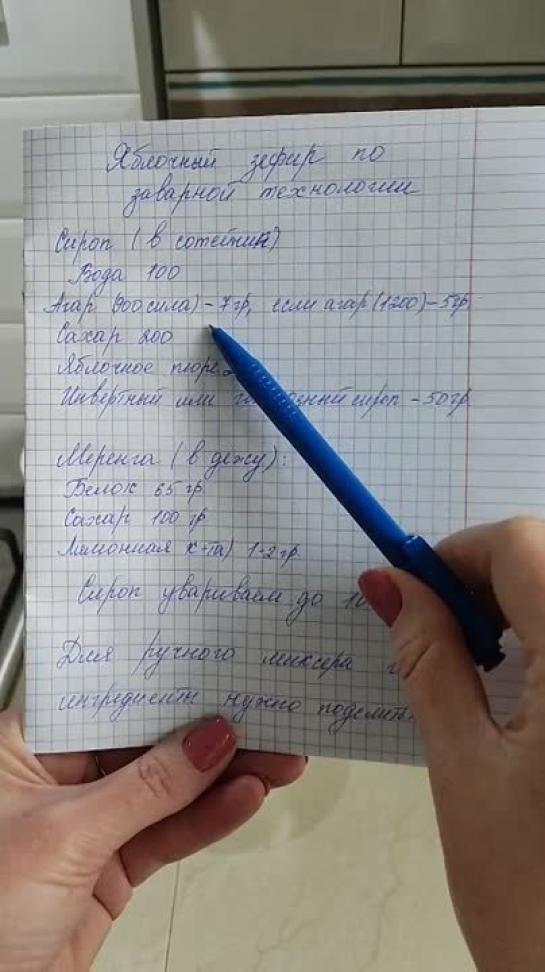 Яблочный зефир по
заварной технологии
Сироп (в сотейник)
Вода 100
Агар (900 сила) - 7 гр, если агар (1200) - 5 гр
Сахар 200
Яблочное пюре
Инвертный или сироп - 50 гр
Меренга (в дежу):
Белок 65 гр
Сахар 100 гр
Лимонная к-та) 1-2 гр
Сироп увариваем до
Для ручного миксера
ингредиенты нужно поделить